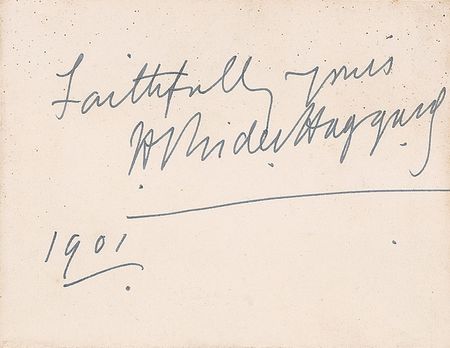 Faithfully yours
H Rider Haggard
1901